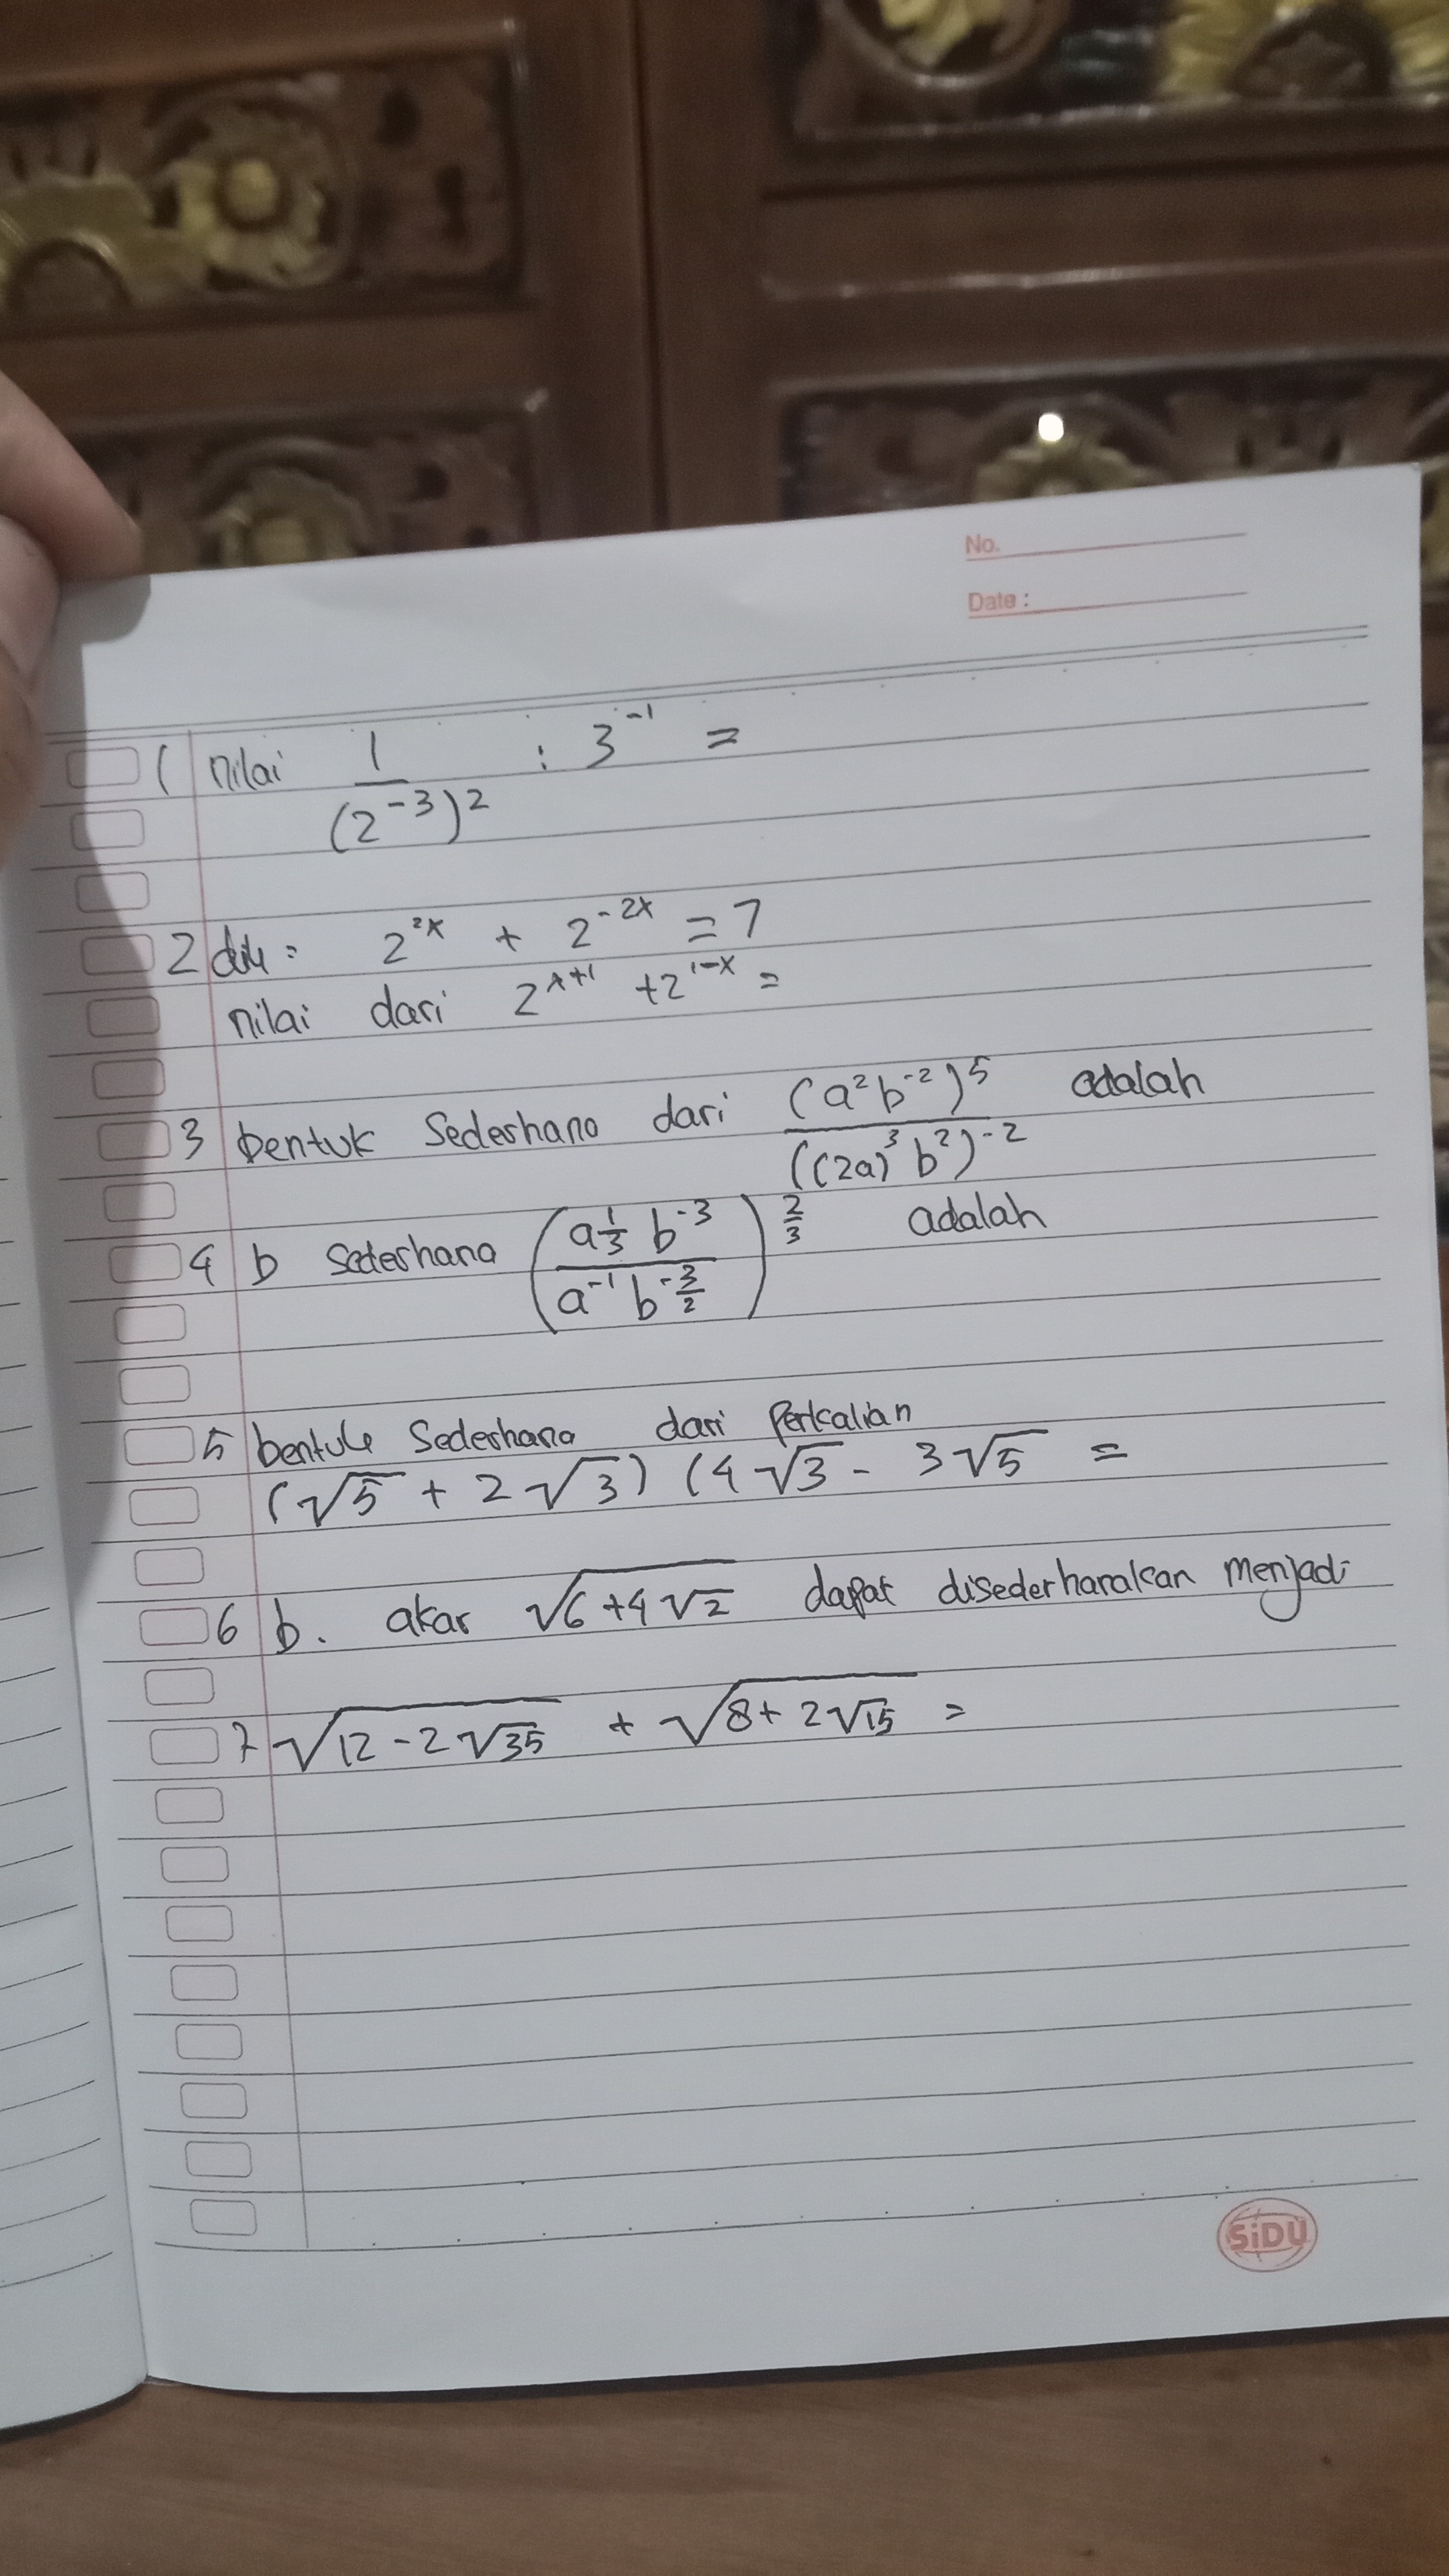 No.
Date :
1 nilai 1/(2⁻³)² : 3⁻¹ =
2 dik = 2²ˣ + 2⁻²ˣ = 7
nilai dari 2ˣ⁺¹ + 2¹⁻ˣ =
3 bentuk Sederhana dari (a²b⁻²)⁵/((2a)³b²)⁻² adalah
4 b sederhana (a^⅓ b⁻³/a⁻¹ b^-3/2)^⅔ adalah
5 bentuk Sederhana dari Perkalian
(√5 + 2√3) (4√3 - 3√5 =
6 b. akar √(6+4√2) dapat disederhanakan menjadi
7 √(12-2√35) + √(8+2√15) =
SiDU